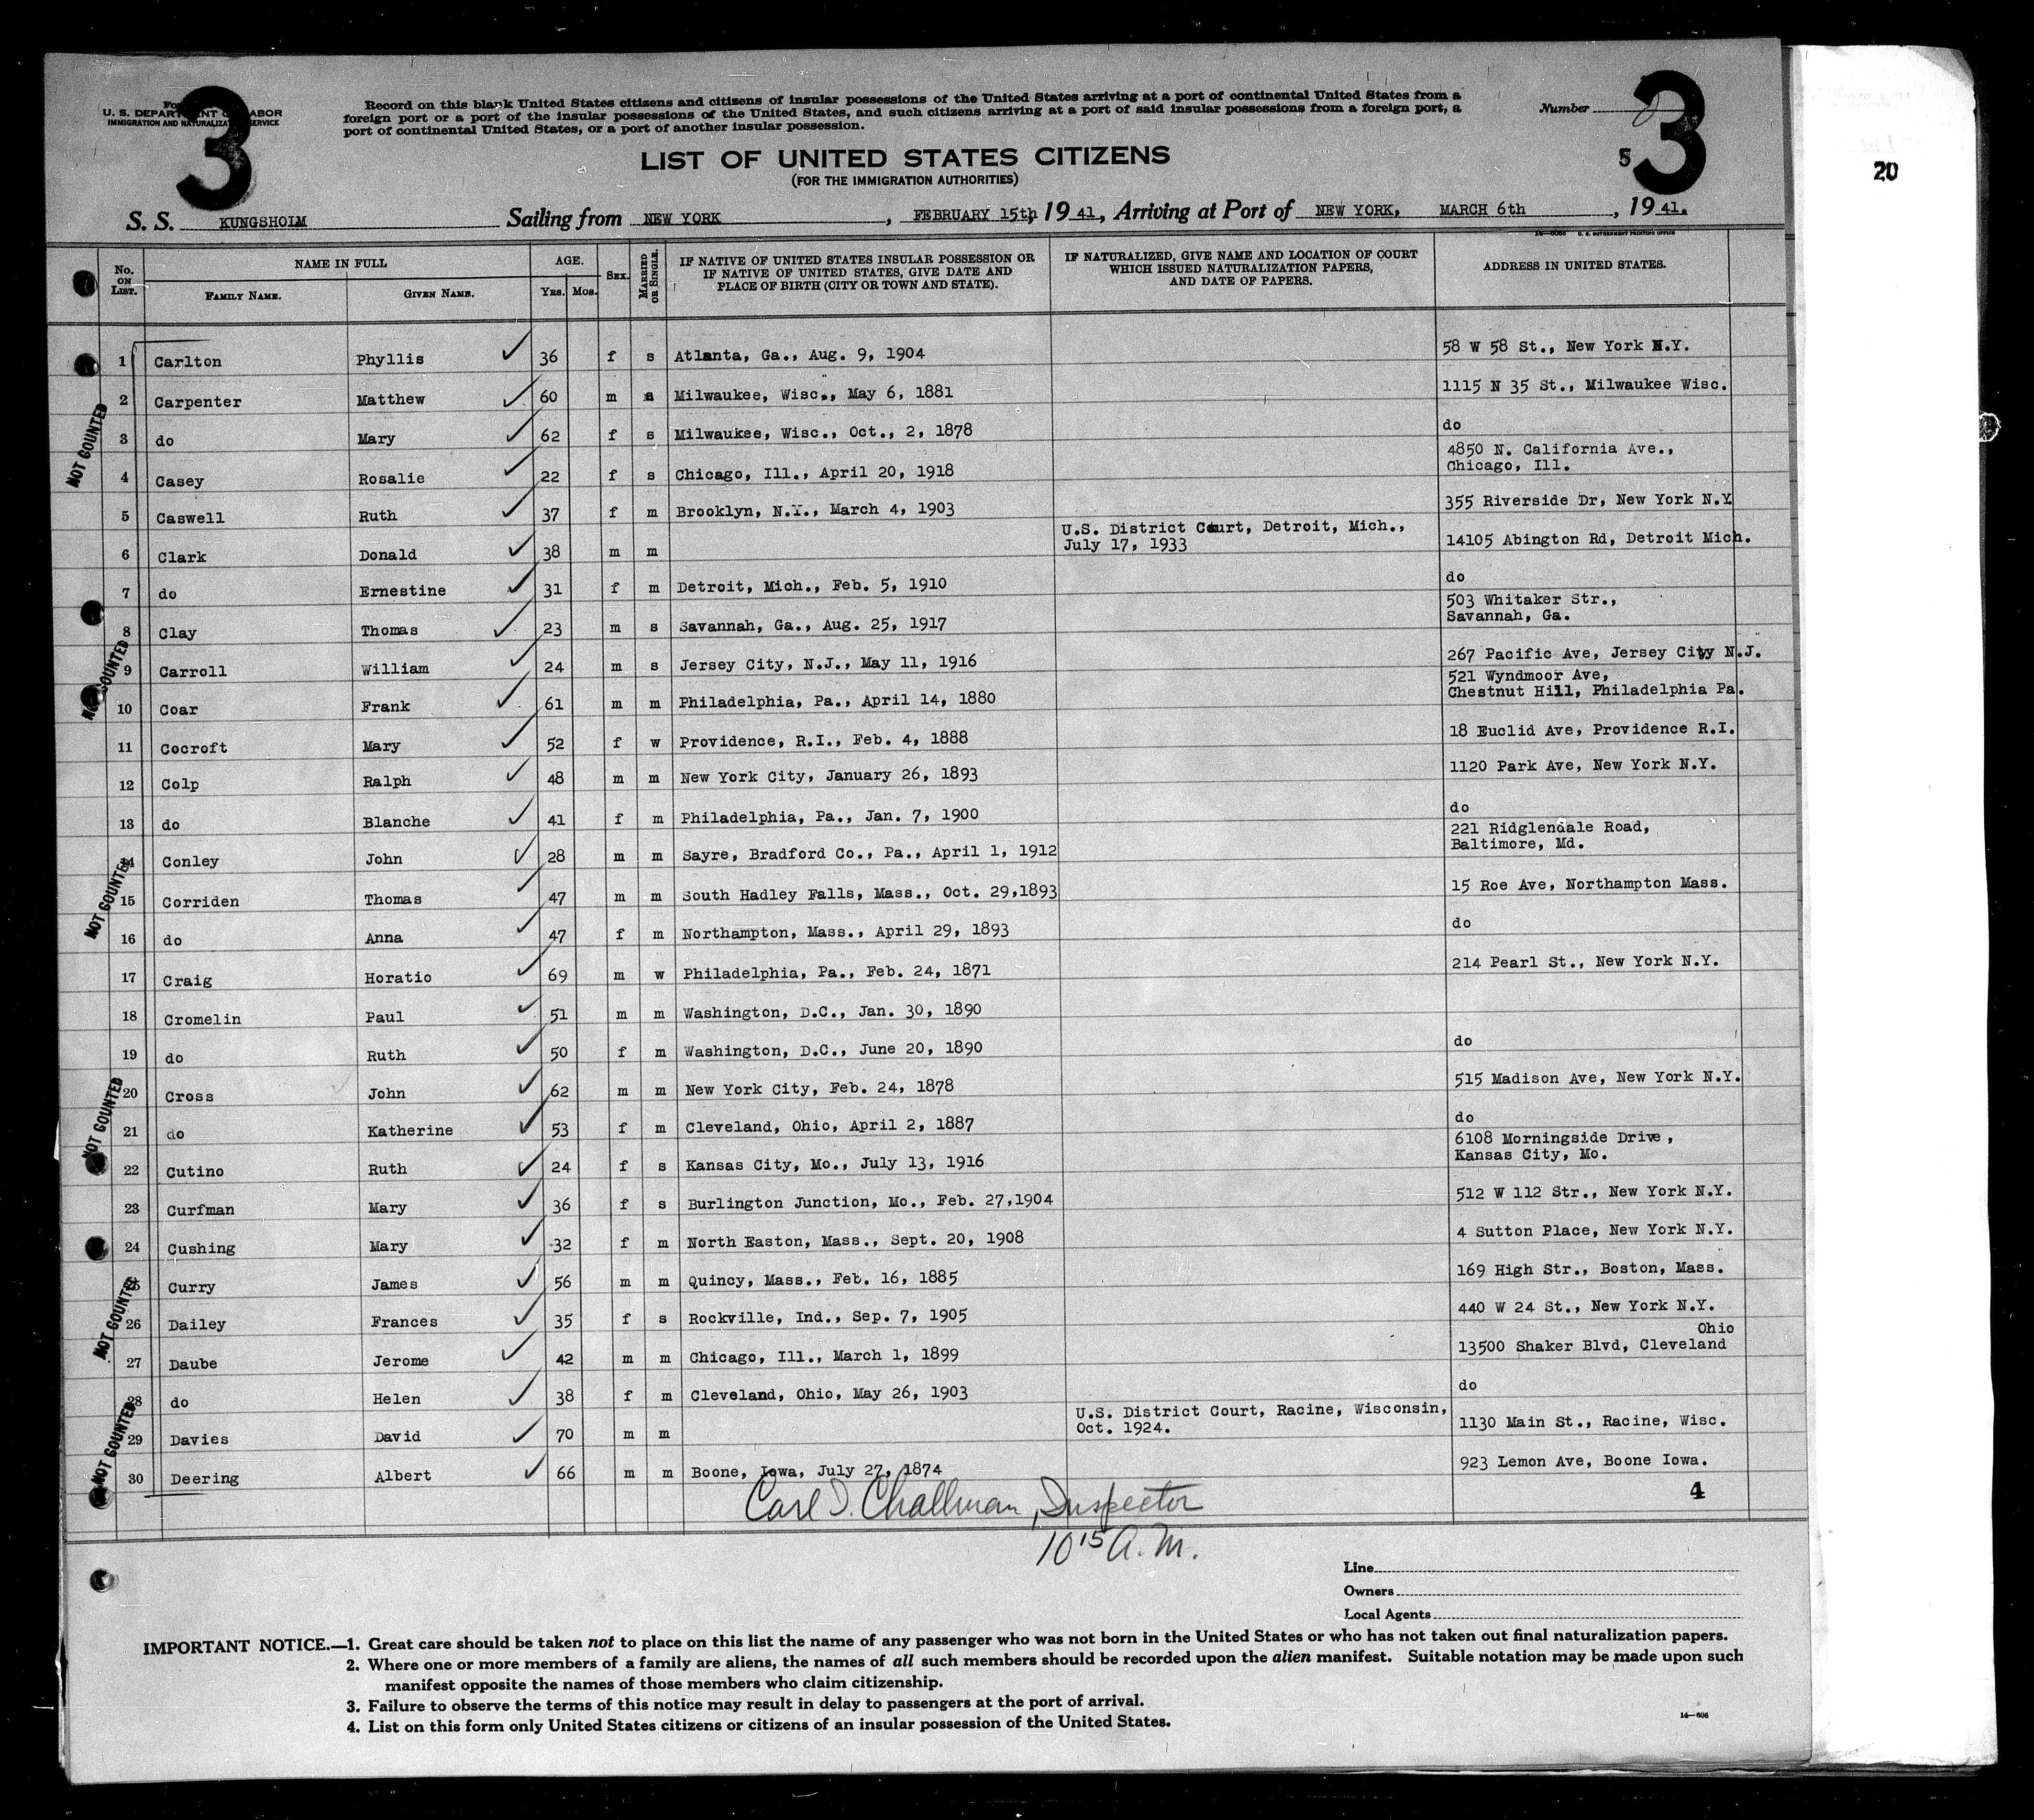 3
3
Form
U. S. DEPARTMENT OF LABOR
IMMIGRATION AND NATURALIZATION SERVICE
Record on this blank United States citizens and citizens of insular possessions of the United States arriving at a port of continental United States from a
foreign port or a port of the insular possessions of the United States, and such citizens arriving at a port of said insular possessions from a foreign port, a
port of continental United States, or a port of another insular possession.
Number
5
20
LIST OF UNITED STATES CITIZENS
(FOR THE IMMIGRATION AUTHORITIES)
S. S. KUNGSHOLM Sailing from NEW YORK, FEBRUARY 15th, 1941, Arriving at Port of NEW YORK, MARCH 6th, 1941.
U. S. GOVERNMENT PRINTING OFFICE
No. ON LIST. NAME IN FULL FAMILY NAME. GIVEN NAME. AGE. YRS. MOS. SEX. MARRIED OR SINGLE. IF NATIVE OF UNITED STATES INSULAR POSSESSION OR IF NATIVE OF UNITED STATES, GIVE DATE AND PLACE OF BIRTH (CITY OR TOWN AND STATE). IF NATURALIZED, GIVE NAME AND LOCATION OF COURT WHICH ISSUED NATURALIZATION PAPERS, AND DATE OF PAPERS. ADDRESS IN UNITED STATES.
1 Carlton Phyllis 36 f s Atlanta, Ga., Aug. 9, 1904 58 W 58 St., New York N.Y.
2 Carpenter Matthew 60 m s Milwaukee, Wisc., May 6, 1881 1115 N 35 St., Milwaukee Wisc.
3 do Mary 62 f s Milwaukee, Wisc., Oct., 2, 1878 do
4 Casey Rosalie 22 f s Chicago, Ill., April 20, 1918 4850 N. California Ave., Chicago, Ill.
5 Caswell Ruth 37 f m Brooklyn, N.Y., March 4, 1903 355 Riverside Dr, New York N.Y
6 Clark Donald 38 m m U.S. District Court, Detroit, Mich., July 17, 1933 14105 Abington Rd, Detroit Mich.
7 do Ernestine 31 f m Detroit, Mich., Feb. 5, 1910 do
8 Clay Thomas 23 m s Savannah, Ga., Aug. 25, 1917 503 Whitaker Str., Savannah, Ga.
9 Carroll William 24 m s Jersey City, N.J., May 11, 1916 267 Pacific Ave, Jersey City N.J.
10 Coar Frank 61 m m Philadelphia, Pa., April 14, 1880 521 Wyndmoor Ave, Chestnut Hill, Philadelphia Pa.
11 Cocroft Mary 52 f w Providence, R.I., Feb. 4, 1888 18 Euclid Ave, Providence R.I.
12 Colp Ralph 48 m m New York City, January 26, 1893 1120 Park Ave, New York N.Y.
13 do Blanche 41 f m Philadelphia, Pa., Jan. 7, 1900 do
14 Conley John 28 m m Sayre, Bradford Co., Pa., April 1, 1912 221 Ridglendale Road, Baltimore, Md.
15 Corriden Thomas 47 m m South Hadley Falls, Mass., Oct. 29,1893 15 Roe Ave, Northampton Mass.
16 do Anna 47 f m Northampton, Mass., April 29, 1893 do
17 Craig Horatio 69 m w Philadelphia, Pa., Feb. 24, 1871 214 Pearl St., New York N.Y.
18 Cromelin Paul 51 m m Washington, D.C., Jan. 30, 1890
19 do Ruth 50 f m Washington, D.C., June 20, 1890 do
20 Cross John 62 m m New York City, Feb. 24, 1878 515 Madison Ave, New York N.Y.
21 do Katherine 53 f m Cleveland, Ohio, April 2, 1887 do
22 Cutino Ruth 24 f s Kansas City, Mo., July 13, 1916 6108 Morningside Drive, Kansas City, Mo.
23 Curfman Mary 36 f s Burlington Junction, Mo., Feb. 27,1904 512 W 112 Str., New York N.Y.
24 Cushing Mary 32 f m North Easton, Mass., Sept. 20, 1908 4 Sutton Place, New York N.Y.
25 Curry James 56 m m Quincy, Mass., Feb. 16, 1885 169 High Str., Boston, Mass.
26 Dailey Frances 35 f s Rockville, Ind., Sep. 7, 1905 440 W 24 St., New York N.Y.
27 Daube Jerome 42 m m Chicago, Ill., March 1, 1899 13500 Shaker Blvd, Cleveland Ohio
28 do Helen 38 f m Cleveland, Ohio, May 26, 1903 do
29 Davies David 70 m m U.S. District Court, Racine, Wisconsin, Oct. 1924. 1130 Main St., Racine, Wisc.
30 Deering Albert 66 m m Boone, Iowa, July 27, 1874 923 Lemon Ave, Boone Iowa.
NOT COUNTED
NOT COUNTED
NOT COUNTED
NOT COUNTED
NOT COUNTED
NOT COUNTED
4
Carl J. Challman, Inspector
10 15 A.M.
Line
Owners
Local Agents
IMPORTANT NOTICE.—1. Great care should be taken not to place on this list the name of any passenger who was not born in the United States or who has not taken out final naturalization papers.
2. Where one or more members of a family are aliens, the names of all such members should be recorded upon the alien manifest. Suitable notation may be made upon such
manifest opposite the names of those members who claim citizenship.
3. Failure to observe the terms of this notice may result in delay to passengers at the port of arrival.
4. List on this form only United States citizens or citizens of an insular possession of the United States.
14—608